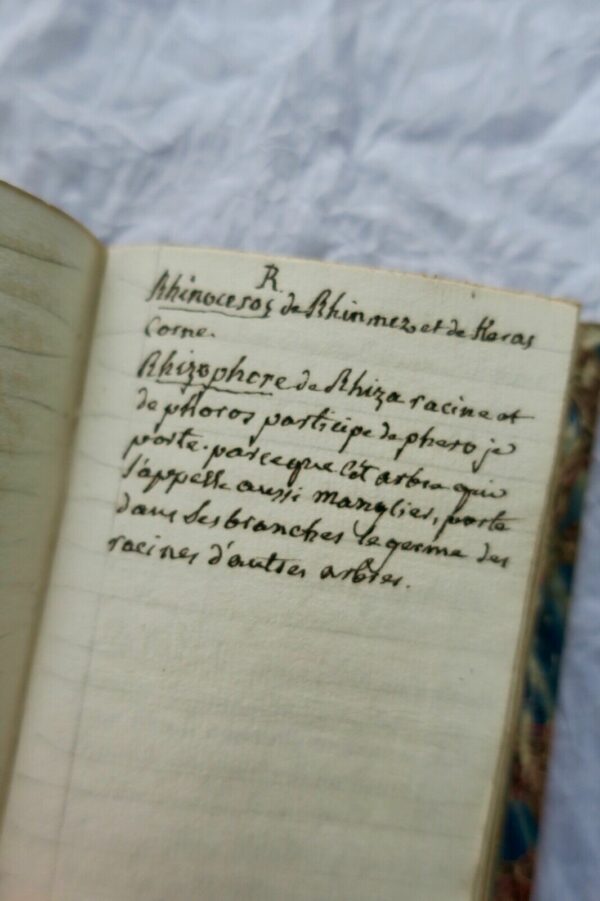 R
Rhinoceros de Rhin nez et de Keras
Corne.
Rhizophore de Rhiza racine et
de phoros participe de phero je
porte. parceque cet arbre qui
s'appelle aussi manglier, porte
dans ses branches le germe des
racines d'autres arbres.